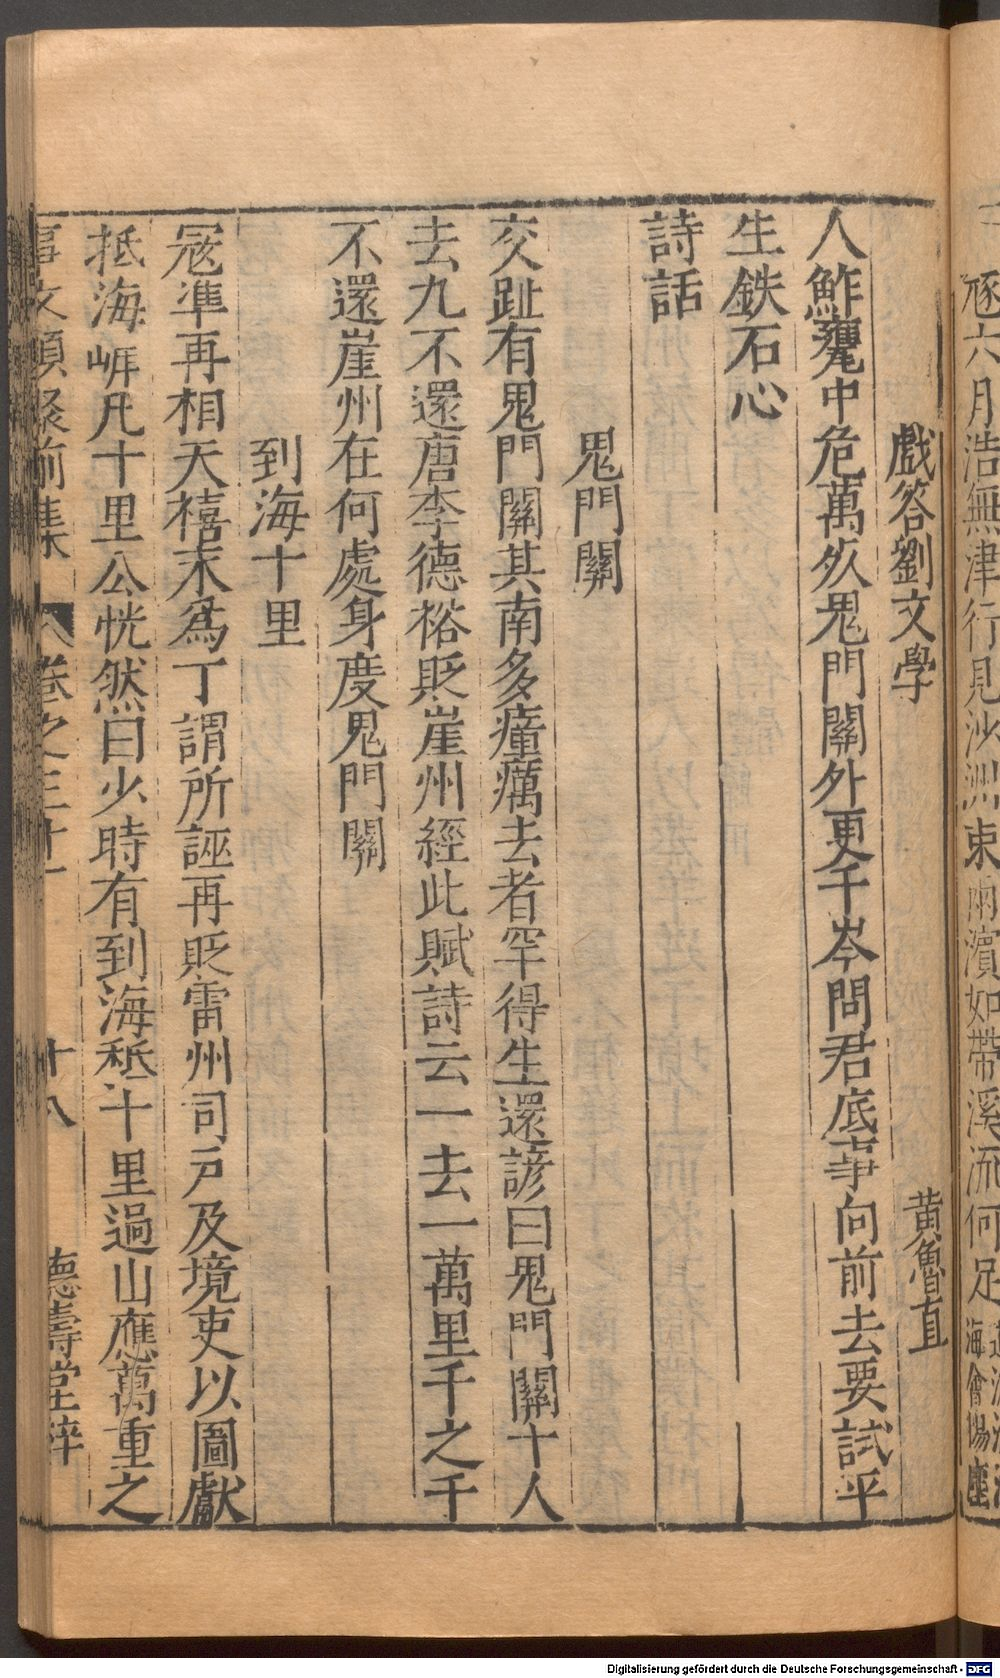 逐六月浩無津行見沙洲東兩濱如帶溪流何足
海會揚塵
戲答劉文學 黄魯直
人鮓甕中危萬死鬼門關外更千岑問君底事向前去要試平
生鉄石心
詩話
鬼門關
交趾有鬼門關其南多瘴癘去者罕得生還諺曰鬼門關十人
去九不還唐李德裕貶崖州經此賦詩云一去一萬里千之千
不還崖州在何處身度鬼門關
到海十里
冦準再相天禧末爲丁謂所誣再貶雷州司戶及境吏以圖獻
抵海崕凡十里公恍然曰少時有到海秪十里過山應萬重之
事文類聚前集 卷之三十一 十八 德壽堂梓
Digitalisierung gefördert durch die Deutsche Forschungsgemeinschaft - DFG